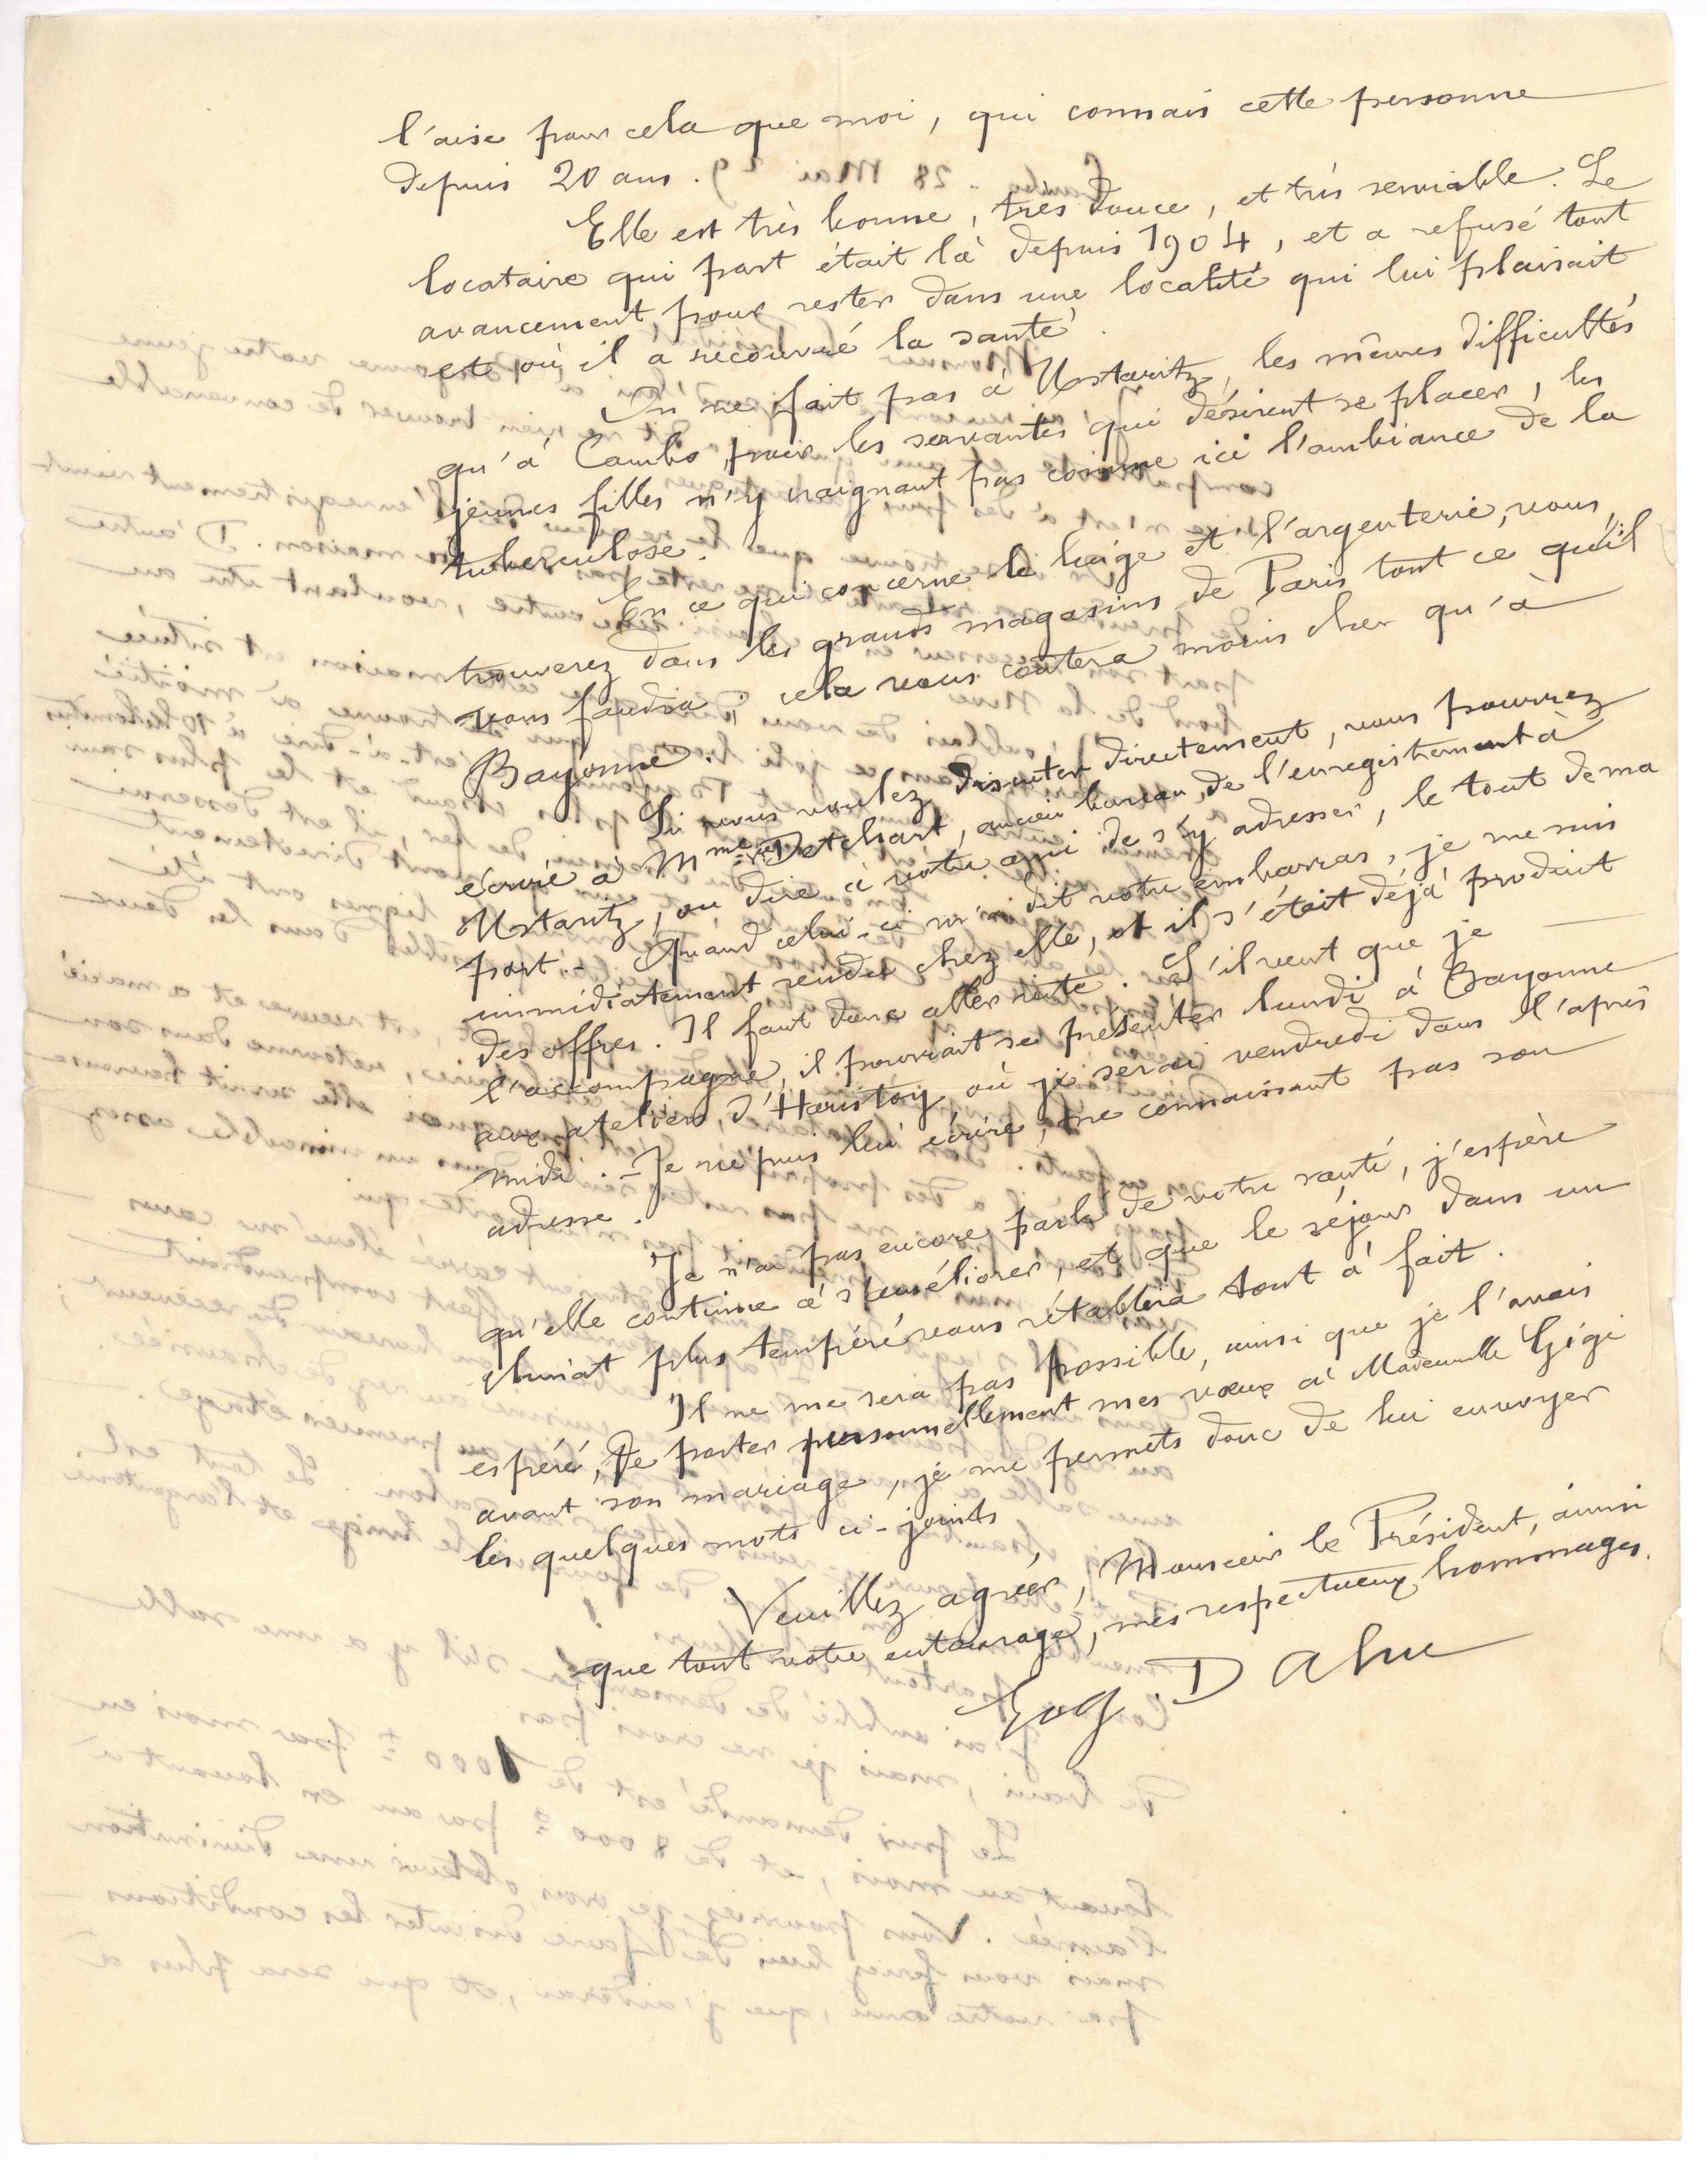 l'aise pour cela que moi, qui connais cette personne
depuis 20 ans.
Elle est très bonne, très douce, et très serviable. Le
locataire qui part était là depuis 1904, et a refusé tout
avancement, pour rester dans une localité qui lui plaisait
et où il a recouvré la santé.
On ne fait pas à Ustaritz, les mêmes difficultés
qu'à Cambo, pour les servantes qui désirent se placer, les
jeunes filles n'y craignant pas comme ici l'ambiance de la
tuberculose.
En ce qui concerne le linge et l'argenterie, vous
trouverez dans les grands magasins de Paris tout ce qu'il
vous faudra, cela vous coûtera moins cher qu'à
Bayonne.
Si vous voulez discuter directement, vous pourrez
écrire à Mme Detchart, ancien bureau de l'enregistrement à
Ustaritz, ou dire à votre ami de s'y adresser, le tout de ma
part. - Quand celui-ci m'a dit votre embarras, je me suis
immédiatement rendu chez elle, et il s'était déjà produit
des offres. Il faut donc aller vite. S'il veut que je
l'accompagne, il pourrait se présenter lundi à Bayonne
aux ateliers d'Haristoy où je serai vendredi dans l'après
midi. - Je ne puis lui écrire, ne connaissant pas son
adresse.
Je n'ai pas encore parlé de votre santé, j'espère
qu'elle continue à s'améliorer, et que le séjour dans un
climat plus tempéré vous rétablira tout à fait.
Il ne me sera pas possible, ainsi que je l'avais
espéré, de porter personnellement mes vœux à Mademoiselle Gigi
avant son mariage, je me permets donc de lui envoyer
les quelques mots ci-joints.
Veuillez agréer, Monsieur le Président, ainsi
que tout votre entourage, mes respectueux hommages.